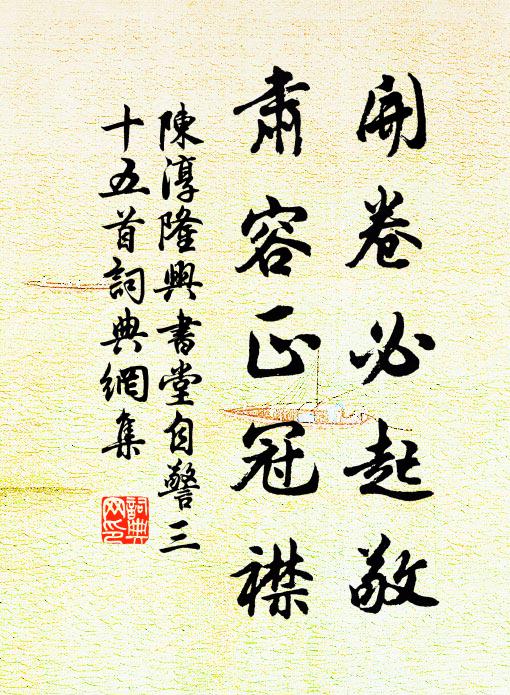 開卷必起敬
肅容正冠襟
陳淳隆興書堂自警三
十五首詞典網集
詞典
网印